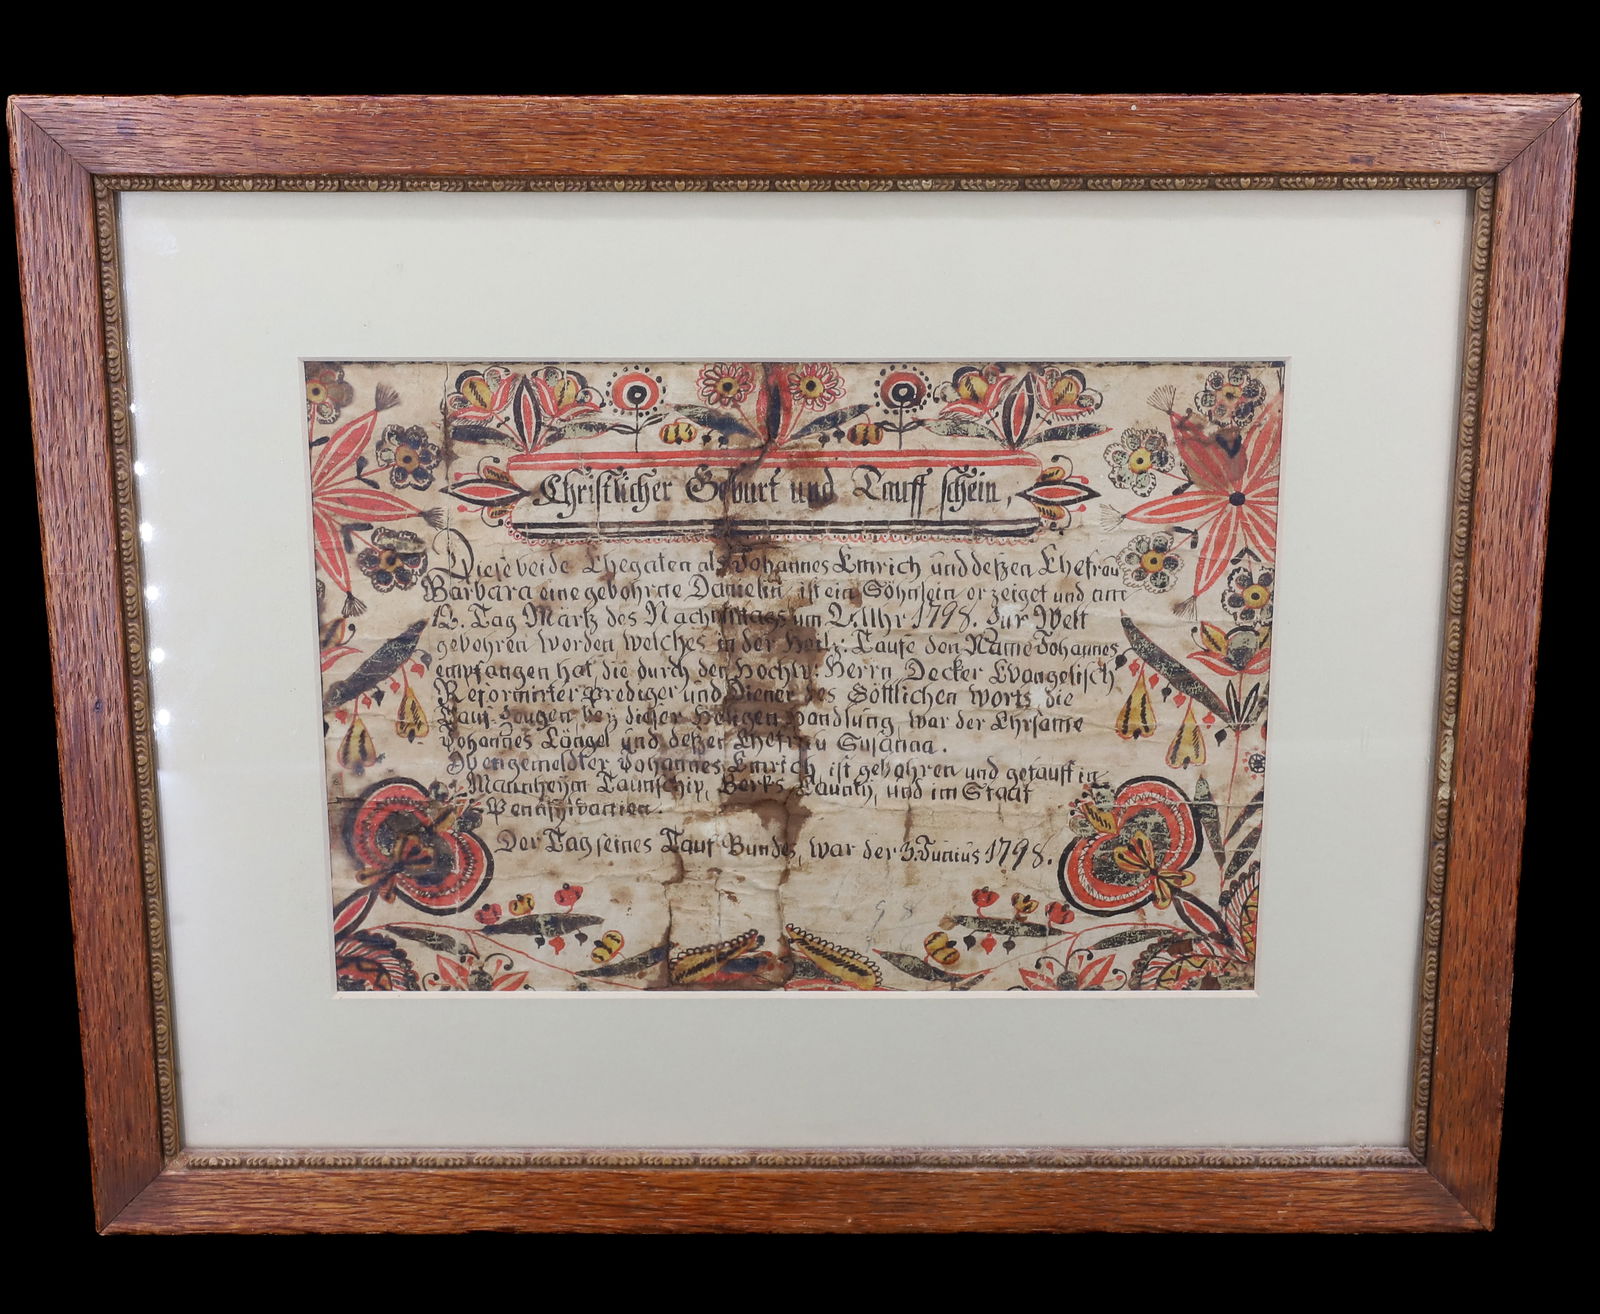 Christlicher Geburt und Tauff schein,
Diese beide Ehegaten als Johannes Emrich und deßen Ehefrau
Barbara eine gebohrne Danielin, ist ein Söhnlein erzeiget und am
Tag Märtz des Nachmittags um 2. Uhr 1798. zur Welt
gebohren worden, welches in der Heil: Taufe den Name Johannes
empfangen hat, die durch den Hochw: Herrn, Decker Evangelisch
Reformirter Prediger und Diener des Göttlichen Worts, die
Tauf-Zeugen, bey dieser Heiligen Handlung, war der Ehrsame
Johannes Längel und deßen Ehefrau Susanna.
Obengemeldter Johannes Emrich ist gebohren und getaufft in
Mannheym Taunschip, Berks Caunty, und im Staat
Penshivanien.
Der Tag seines Tauf Bundes, war der 3. Junius 1798.